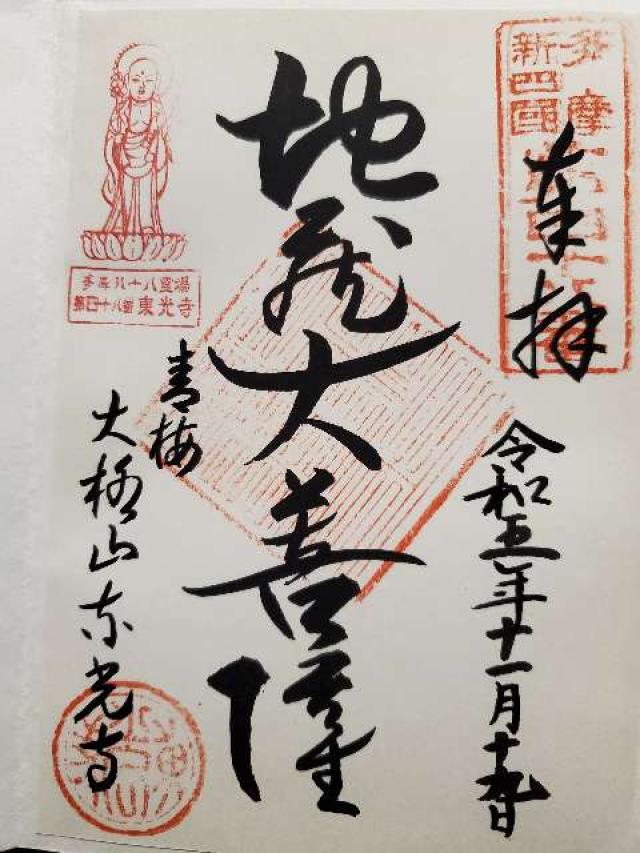 多摩
新四國
奉拝
令和五年十一月十九日
地蔵大菩薩
多摩八十八霊場
第四十八番 東光寺
青梅
東光寺